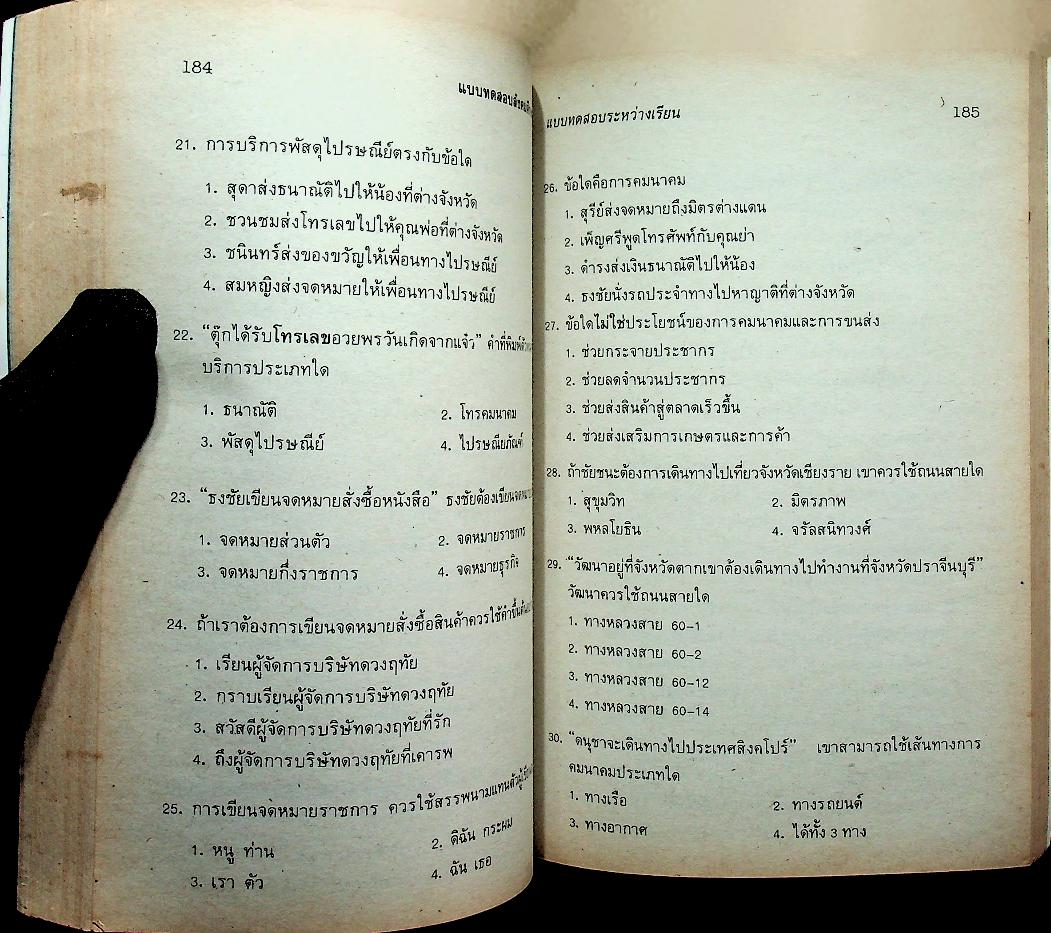 184
แบบทดสอบ
21. การบริการพัสดุไปรษณีย์ตรงกับข้อใด
1. สุดาส่งธนาณัติไปให้น้องที่ต่างจังหวัด
2. ชวนชมส่งโทรเลขไปให้คุณพ่อที่ต่างจังหวัด
3. ชนินทร์ส่งของขวัญให้เพื่อนทางไปรษณีย์
4. สมหญิงส่งจดหมายให้เพื่อนทางไปรษณีย์
22. “ตุ๊กได้รับโทรเลขอวยพรวันเกิดจากแจ๋ว” คำที่พิมพ์
บริการประเภทใด
1. ธนาณัติ
2. โทรคมนาคม
3. พัสดุไปรษณีย์
4. ไปรษณียภัณฑ์
23. “ธงชัยเขียนจดหมายสั่งซื้อหนังสือ” ธงชัยต้องเขียน
1. จดหมายส่วนตัว
2. จดหมายราชการ
3. จดหมายกึ่งราชการ
4. จดหมายธุรกิจ
24. ถ้าเราต้องการเขียนจดหมายสั่งซื้อสินค้าควรใช้คำขึ้นต้น
1. เรียนผู้จัดการบริษัทดวงฤทัย
2. กราบเรียนผู้จัดการบริษัทดวงฤทัย
3. สวัสดีผู้จัดการบริษัทดวงฤทัยที่รัก
4. ถึงผู้จัดการบริษัทดวงฤทัยที่เคารพ
25. การเขียนจดหมายราชการ ควรใช้สรรพนามแทนตัว
1. หนู ท่าน
2. ดิฉัน กระผม
3. เรา ตัว
4. ฉัน เธอ
แบบทดสอบระหว่างเรียน
185
26. ข้อใดคือการคมนาคม
1. สุรีย์ส่งจดหมายถึงมิตรต่างแดน
2. เพ็ญศรีพูดโทรศัพท์กับคุณย่า
3. ดำรงส่งเงินธนาณัติไปให้น้อง
4. ธงชัยนั่งรถประจำทางไปหาญาติที่ต่างจังหวัด
27. ข้อใดไม่ใช่ประโยชน์ของการคมนาคมและการขนส่ง
1. ช่วยกระจายประชากร
2. ช่วยลดจำนวนประชากร
3. ช่วยส่งสินค้าสู่ตลาดเร็วขึ้น
4. ช่วยส่งเสริมการเกษตรและการค้า
28. ถ้าชัยชนะต้องการเดินทางไปเที่ยวจังหวัดเชียงราย เขาควรใช้ถนนสายใด
1. สุขุมวิท
2. มิตรภาพ
3. พหลโยธิน
4. จรัลสนิทวงศ์
29. “วัฒนาอยู่ที่จังหวัดตากเขาต้องเดินทางไปทำงานที่จังหวัดปราจีนบุรี”
วัฒนาควรใช้ถนนสายใด
1. ทางหลวงสาย 60-1
2. ทางหลวงสาย 60-2
3. ทางหลวงสาย 60-12
4. ทางหลวงสาย 60-14
30. “ดนุชาจะเดินทางไปประเทศสิงคโปร์” เขาสามารถใช้เส้นทางการ
คมนาคมประเภทใด
1. ทางเรือ
2. ทางรถยนต์
3. ทางอากาศ
4. ได้ทั้ง 3 ทาง